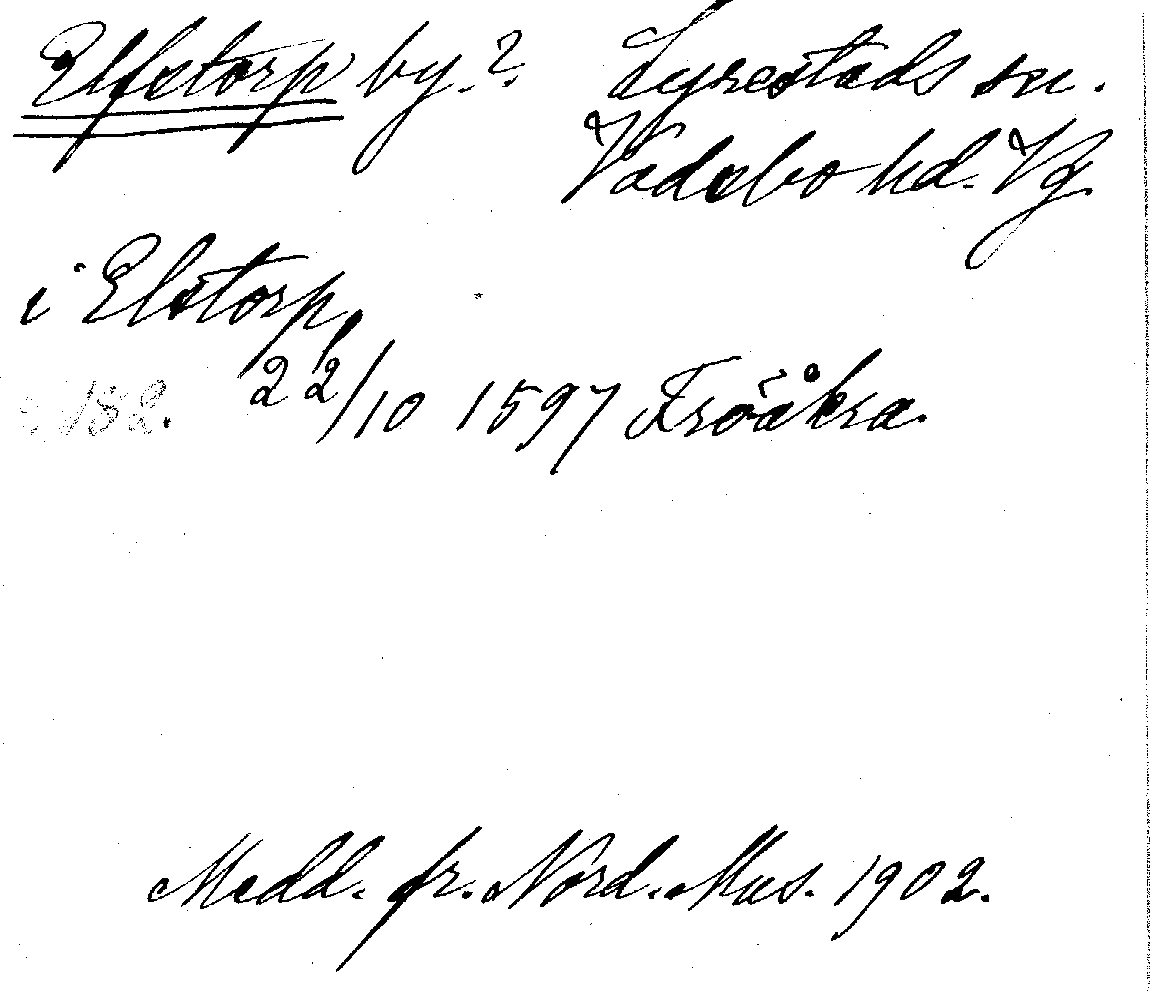 Elfstorp by.? Lyrestads sn.
Vadsbo hd. Vg.
i Elstorp,
s. 182. 22/10 1597 Fröåkra.
Medd. fr. Nord. Mus. 1902.